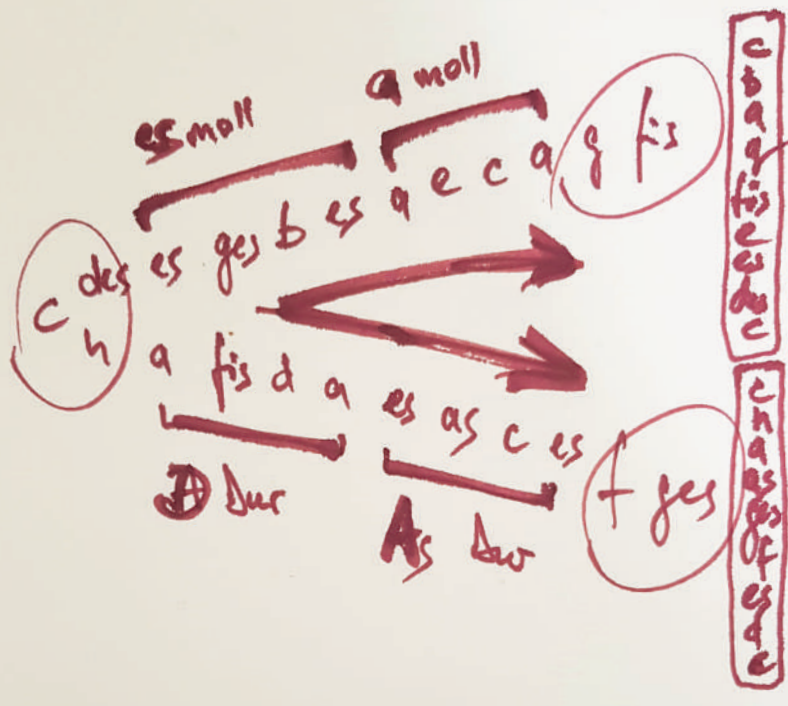 a moll
es moll
des es ges b es a e c a g fis
c
h a fis d a es as c es f ges
D Dur
As Dur
c
b
a
g
fis
e
es
des
c
c
h
a
as
ges
f
es
d
c